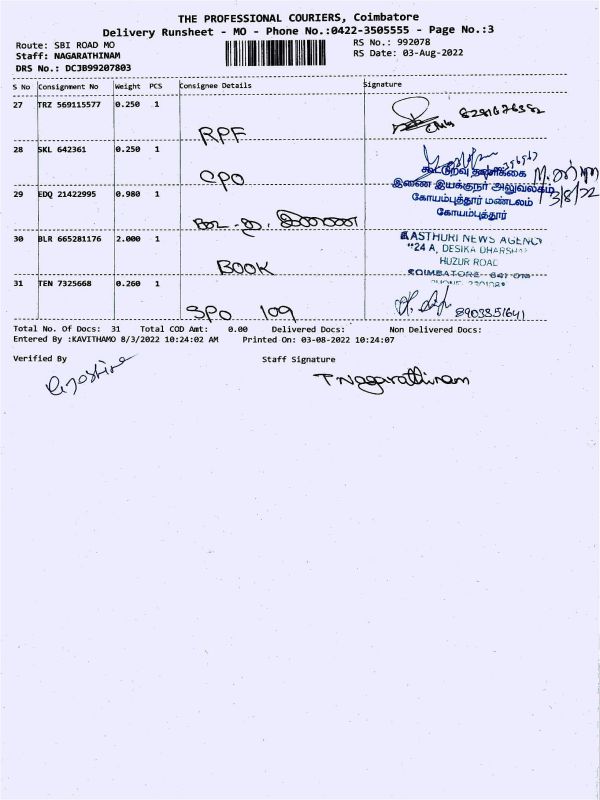 THE PROFESSIONAL COURIERS, Coimbatore
Delivery Runsheet - MO - Phone No.:0422-3505555 - Page No.:3
Route: SBI ROAD MO
RS No.: 992078
Staff: NAGARATHINAM
RS Date: 03-Aug-2022
DRS No.: DCJB99207803
S No Consignment No Weight PCS Consignee Details Signature
27 TRZ 569115577 0.250 1
RPF
28 SKL 642361 0.250 1
CPO
கூட்டுறவு தணிக்கை
29 EDQ 21422995 0.980 1
இணை இயக்குநர் அலுவலகம்
3/8/22
கோயம்புத்தூர் மண்டலம்
கோயம்புத்தூர்
30 BLR 665281176 2.000 1
BOOK
KASTHURI NEWS AGENCY
"24 A, DESIKA DHARSHA
HUZUR ROAD
COIMBATORE- 641 018
31 TEN 7325668 0.260 1
SPO 109
8903351641
Total No. Of Docs: 31 Total COD Amt: 0.00 Delivered Docs: Non Delivered Docs:
Entered By :KAVITHAMO 8/3/2022 10:24:02 AM Printed On: 03-08-2022 10:24:07
Verified By Staff Signature
T Nagarathinam